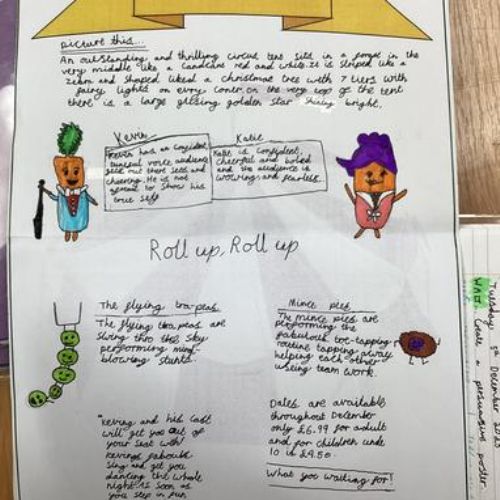 picture this...
An outstanding and thrilling circus tent sits in a forest in the
very middle like a candcane red and white. It is striped like a
zebra and shaped liked a christmas tree with 7 tiers with
fairy lights on every conter. on the very top of the tent
there is a large glizing golden star shining bright.
Kevin
Kevin has an confident,
tuneful voice audience
out there seats and
cheering. He is not
to show his
true self
Katie
Katie is confident,
cheerful and
and the audience is
wowing and fearless.
Roll up, Roll up
The flying tra-peas
The flying tra peas are
Swing thro the sky
performing mind-
blowing stunts.
Mince pies
The mince pies are
performing the
fabulous toe-tapping
routine tapping away
helping each other
useing team work.
"Keving and his cast
will get you out of
your seat with
kevings faboulse
sing and get you
dancing the whole
night As soon as
you step in fun
Dates are available
throughout December
only £6.99 for adult
and for children unde
10 is £4.50
What you waiting for!
Tuesday 5th December 2023
WALT: Create a persuasive poster.